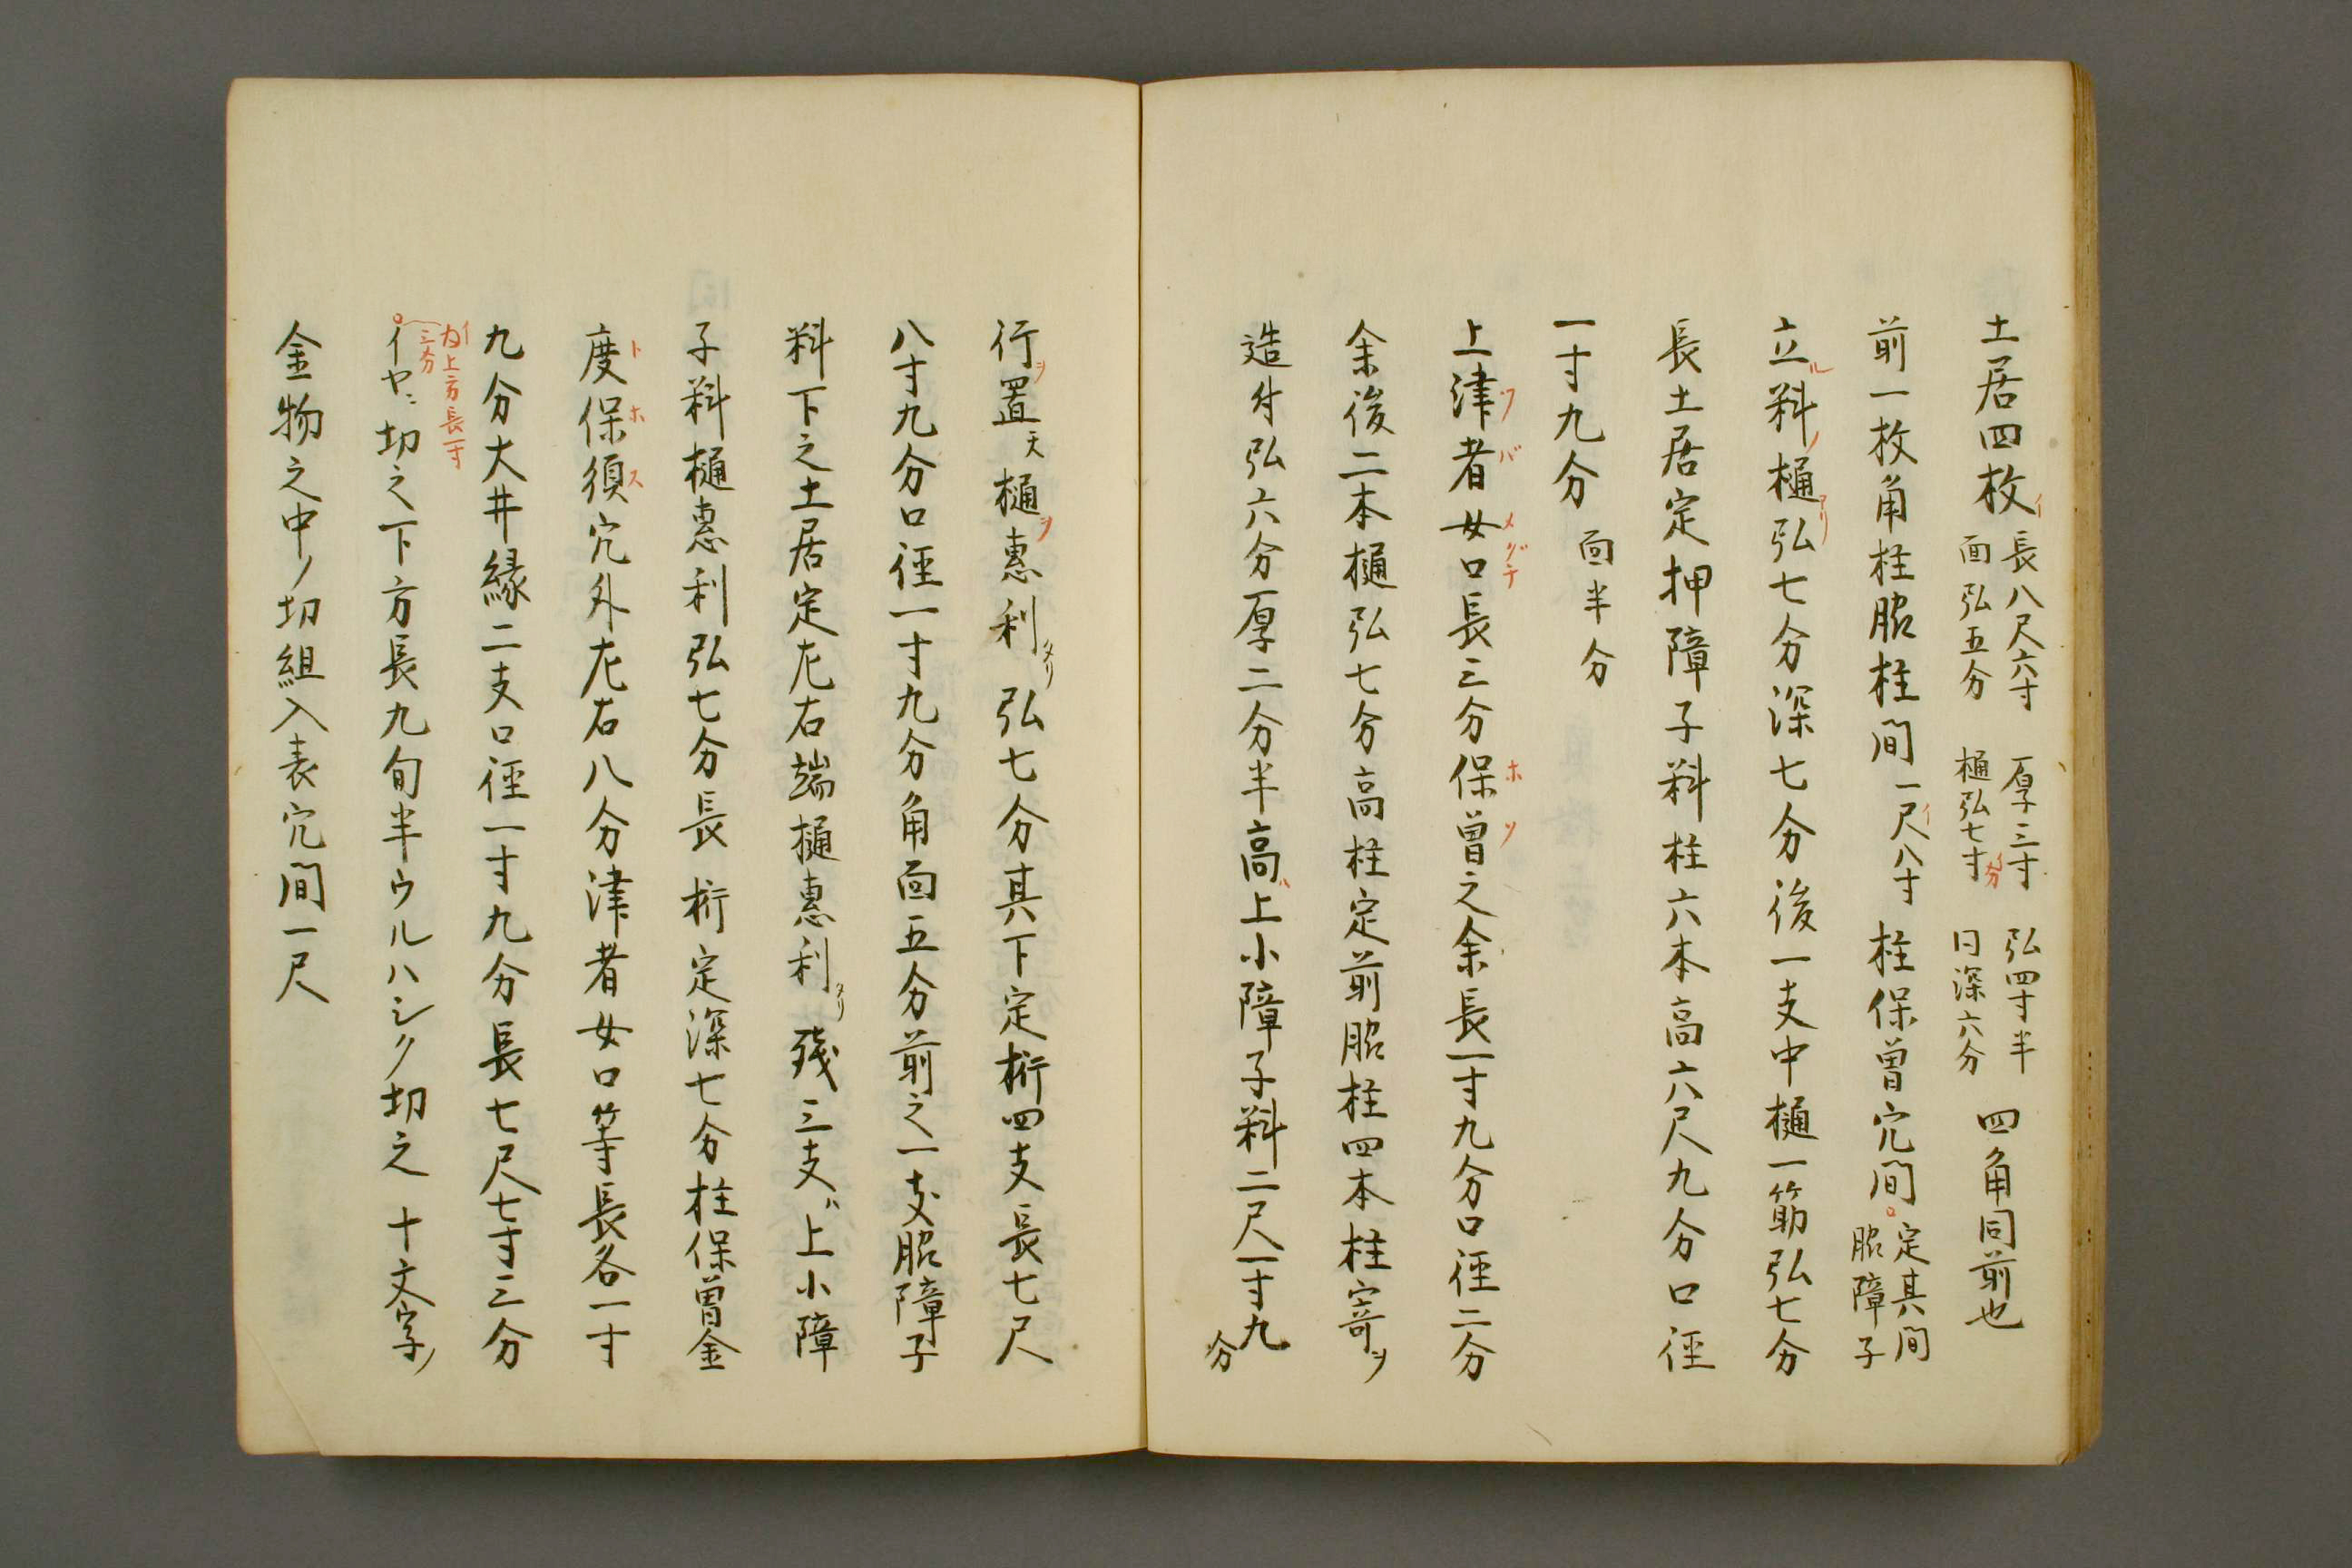 土居四枚 長八尺六寸 厚三寸 弘四寸半 四角同前也
面弘五分 樋弘七寸 口深六分
イ
イ分
前一枚角柱脇柱間 一尺八寸 柱保曽穴間 定其間
脇障子
イ
立ル料ノ樋弘七分深七分後一支中樋一筋弘七分
ヱリ
長土居定押障子料柱六本高六尺九分口徑
一寸九分 面半分
上津者女口長三分保曽之余長一寸九分口徑二分
ツバメグチ ホソ
余後二本樋弘七分高柱定前脇柱四本柱寄ヲ
造付弘六分厚二分半高ハ上小障子料二尺一寸九分
行ヲ置天樋ヲ惠利タリ弘七分其下定桁四支長七尺
八寸九分口徑一寸九分角面五分前之一支脇障子
料下之土居定左右端樋惠利タリ残三支ハ上小障
子料樋惠利弘七分長桁定深七分柱保曽金
度保須穴外左右八分津者女口等長各一寸
トホス
九分大井縁二支口徑一寸九分長七尺七寸三分
イ為上方長一寸
三分
イヤニ切之下方長九旬半ウルハシク切之十文字ノ
金物之中ノ切組入表穴間一尺